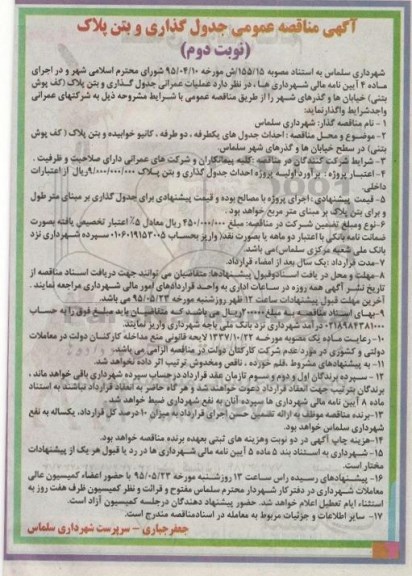 آگهی مناقصه عمومی جدول گذاری و بتن پلاک
(نوبت دوم)
شهرداری سلماس به استناد مصوبه ۱۵۵/۱۵/ش مورخه ۹۵/۰۴/۱۰ شورای محترم اسلامی شهر و در اجرای
ماده ۴ آیین نامه مالی شهرداری هـا ، در نظر دارد عملیات عمرانی جدول گـذاری و بتن پلاک (کف پوش
بتنی) خیابان ها و گذرهای شهـر را از طریق مناقصه عمومی با شرایط مشروحه ذیل به شرکتهای عمرانی
واجدشرایط واگذارنماید:
۱ - نام مناقصه گذار: شهرداری سلماس
۲ - موضوع و محـل مناقصه : احداث جدول های یکطرفه ، دو طرفه ، کانیو خوابیده و بتن پلاک ( کف پوش
بتنی) در سطح خیابان ها و گذرهای شهر سلماس.
۳ - شرایط شرکت کنندگان در مناقصه :کلیه پیمانکاران و شرکت های عمرانی دارای صلاحیت و ظرفیت .
۴ - اعتبـار پـروژه : برآورد اولیـه پروژه احداث جدول گذاری و بتن پـلاک ۹/۰۰۰/۰۰۰/۰۰۰ریال از اعتبارات
داخلی.
۵- قیمت پیشنهادی : اجرای پروژه با مصالح بوده و قیمت پیشنهادی برای جدول گذاری بر مبنای متر طول
و برای بتن پلاک بر مبنای متر مربع خواهد بود .
۶ - نوع ومبلغ تضمین شرکت در مناقصه: مبلغ ۴۵۰/۰۰۰/۰۰۰ ریال معادل ۵٪ اعتبار تخصیص یافته بصورت
ضمانت نامه بانکی با اعتبار دو ماهه یا بصورت نقد( واریز بحساب ۰۱۰۶۰۱۹۱۵۳۰۰۵ سپرده شهرداری نزد
بانک ملی شعبه مرکزی سلماس)می باشد.
۷- مدت قرارداد :یک سال بعد از امضاء قرارداد.
۸- مهلت و محل دریافت اسنادوقبول پیشنهادها: متقاضیان می توانند جهت دریافت اسناد مناقصه از
تاریخ نشر آگهی همه روزه در ساعات اداری به واحد قراردادهای امور مالی شهرداری مراجعه نمایند .
آخرین مهلت قبول پیشنهادات ساعت ۱۲ ظهر روزشنبه مورخه ۹۵/۰۵/۲۳ می باشد.
۹-بهـای اسـناد مناقصـه بـه مبلغ ۲۰۰۰۰۰ریـال می باشـد کـه متقاضیـان باید مبلغ فوق را به حساب
۰۲۱۸۹۸۴۳۸۱۰۰۰ درآمد شهرداری نزد بانک ملی باجه شهرداری واریز نمایند.
۱۰- رعایت ماده یک مصوبه مورخه ۱۳۳۷/۱۰/۲۲ لایحه قانونی منع مداخله کارکنان دولت در معاملات
دولتی و کشوری در مورد عدم شرکت کارکنان دولت در مناقصه الزامی می باشد.
۱۱- به پیشنهادهای مشروط ،قلم خورده ، ناقص ومخدوش ترتیب اثر داده نخواهد شد.
۱۲ - سپرده برندگان اول و دوم و سوم تازمان عقد قرارداد درحساب سپرده شهرداری باقی خواهد ماند ،
برندگان بترتیب جهت انعقاد قرارداد دعوت خواهند شد و هر گاه حاضر به انعقاد قرارداد نباشند به استناد
ماده ۸ آیین نامه مالی شهرداری ها سپرده آنان به نفع شهرداری ضبط خواهد شد.
۱۳-برنده مناقصه موظف به ارائه تضمین حسن اجرای قرارداد به میزان ۱۰ درصد کل قرارداد، یکساله به نفع
شهرداری سلماس خواهد بود.
۱۴-هزینه چاپ آگهی در دو نوبت وهزینه های ثبتی بعهده برنده مناقصه خواهد بود.
۱۵- شهرداری به استناد بند ۵ ماده ۵ آیین نامه مالی شهرداری ها در رد یا قبول هر یک از پیشنهادات
مختار است.
۱۶- پیشنهادهای رسیده راس ساعت ۱۳ روزشنبه مورخه ۹۵/۰۵/۲۳ با حضور اعضاء کمیسیون عالی
معاملات شهرداری در دفتر کار شهردار محترم سلماس مفتوح و قرائت و نظر کمیسیون ظرف هفت روز به
استثناء ایام تعطیل اعلام خواهد شد. حضور پیشنهاد دهندگان درجلسه کمیسیون آزاد است.
۱۷- سایر اطلاعات و جزئیات مربوط به معامله در اسنادمناقصه مندرج است.
جعفر جباری - سرپرست شهرداری سلماس